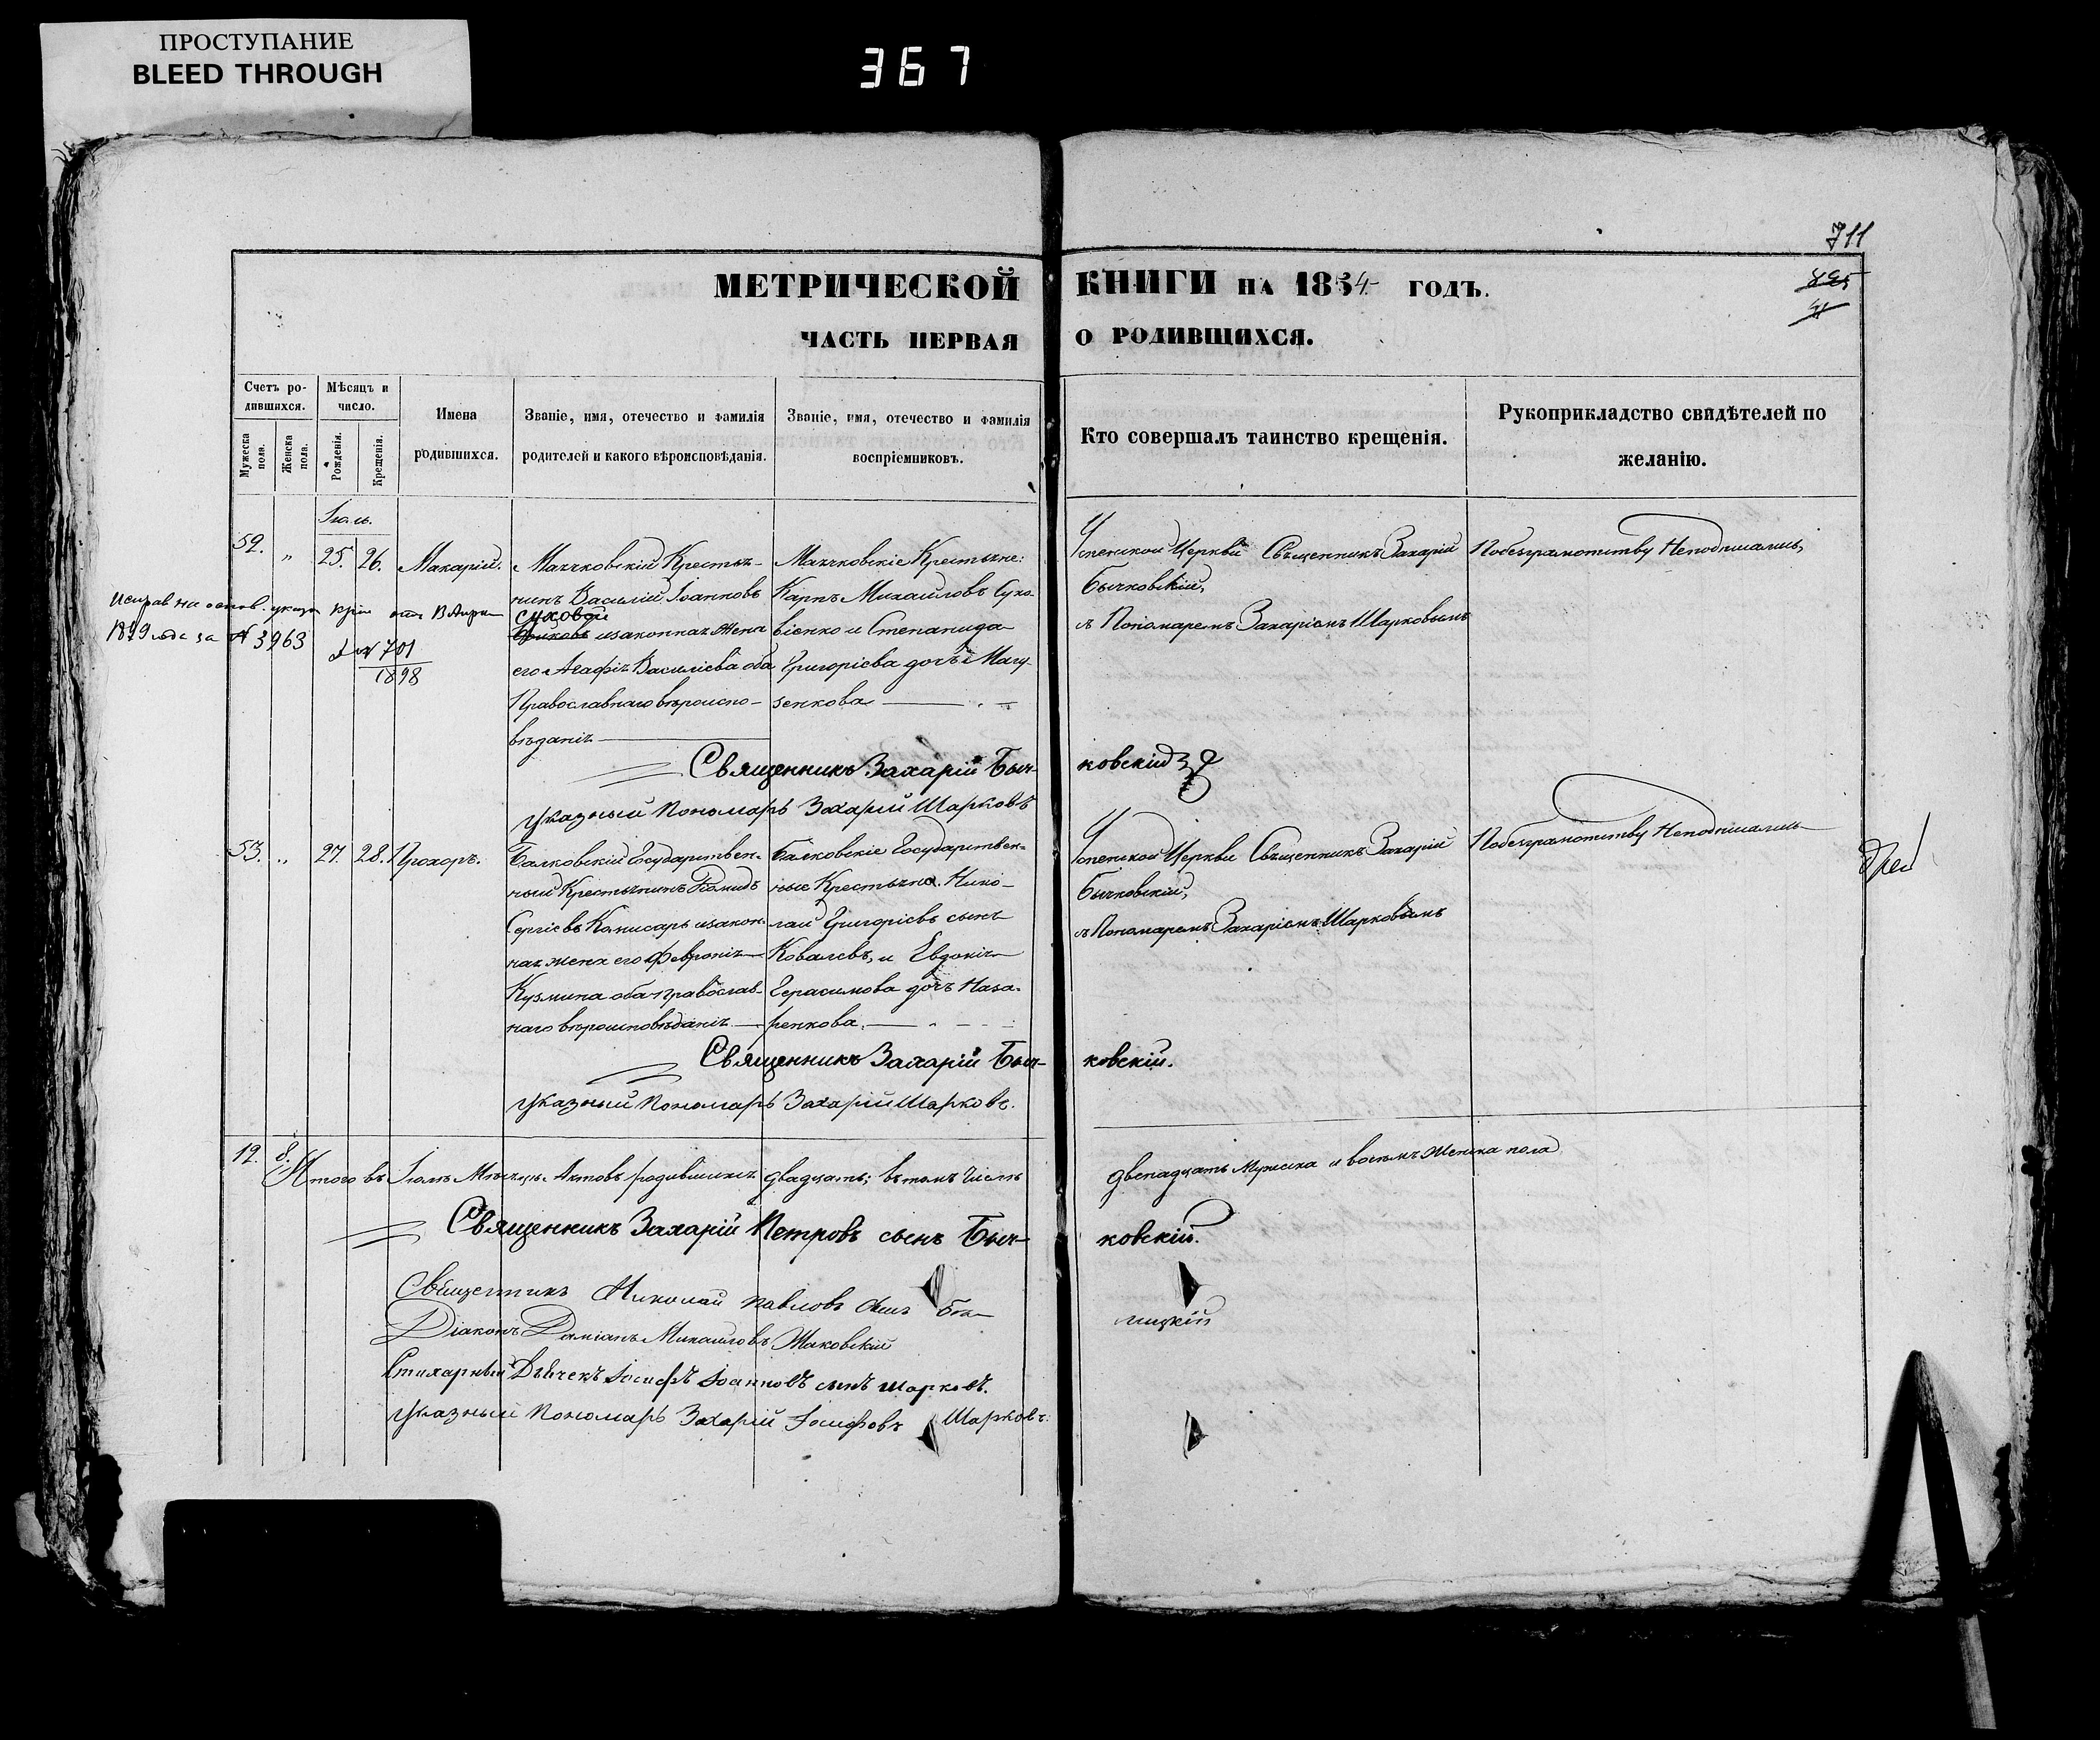 ПРОСТУПАНИЕ
BLEED THROUGH
367
711
МЕТРИЧЕСКОЙ КНИГИ НА 1854 ГОДЪ.
ЧАСТЬ ПЕРВАЯ О РОДИВШИХСЯ.
Счетъ ро-
дившихся.
Мужеска пола.
Женска пола.
Мѣсяцъ и
число.
Рожденія.
Крещенія.
Имена
родившихся.
Званіе, имя, отечество и фамилія
родителей и какого вѣроисповѣданія.
Званіе, имя, отечество и фамилія
воспріемниковъ.
Кто совершалъ таинство крещенія.
Рукоприкладство свидѣтелей по
желанію.
Іюль.
52. „ 25. 26. Макарій.
Исправ на основ. указа
1899 года за № 3963
701
1898
Маячковскій Крестья-
нинъ Василій Іоанновъ
Суховій
изаконная жена
его Агафія Василіева оба
Православнаго вѣроиспо-
вѣданія
Маячковскіе Крестьяне:
Карпъ Михайловъ Сухо-
віенко и Степанида
Григоріева дочь Мату-
зенкова
Успенской Церкви Священникъ Захарій
Бычковскій,
съ Пономаремъ Захаріемъ Шарковымъ
Побезграмотству Неподписались,
Священникъ Захарій Быч- ковскій
Указный Пономарь Захарій Шарковъ
53. „ 27. 28. Прохоръ.
Балковскій Государствен-
ный Крестьянинъ
Сергіевъ Комисаръ изакон-
ная жена его Февронія
Кузмина оба православ-
наго вѣроисповѣданія
Балковскіе Государствен-
ные Крестьяне. Нико-
лай Григоріевъ сынъ
Ковалевъ, и Евдокія
Герасимова дочь Наза-
ренкова.
Успенской Церкви Священникъ Захарій
Бычковскій,
съ Пономаремъ Захаріемъ Шарковымъ
Побезграмотству Неподписались
Священникъ Захарій Быч- ковскій.
Указный Пономарь Захарій Шарковъ.
12. 8.
Итого въ Іюлѣ Мѣсяцѣ Актовъ родившихся двадцать; втомъ числѣ двенадцать Мужеска и восемь Женска пола
Священникъ Захарій Петровъ сынъ Быч- ковскій.
Священникъ Николай Павловъ сынъ
Діаконъ Даміанъ Михайловъ Жаковскій
Стихарный Дьячекъ Іосифъ Іоанновъ сынъ Шарковъ.
Указный Пономарь Захарій Іосифовъ Шарковъ.